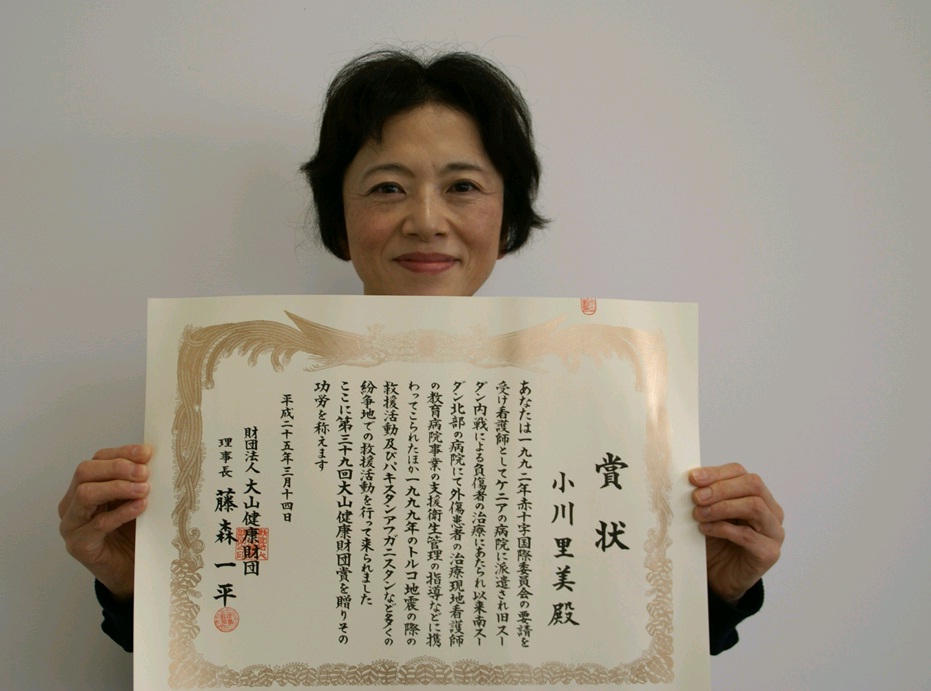 賞状
小川里美殿
あなたは一九九二年赤十字国際委員会の要請を
受け看護師としてケニアの病院に派遣され旧スー
ダン内戦による負傷者の治療にあたられ以来南スー
ダン北部の病院にて外傷患者の治療現地看護師
の教育病院事業の支援衛生管理の指導などに携
わってこられたほか一九九九年のトルコ地震の際の
救援活動及びパキスタンアフガニスタンなど多くの
紛争地での救援活動を行って来られました
ここに第三十九回大山健康財団賞を贈りその
功労を称えます
平成二十五年三月十四日
財団法人 大山健康財団
理事長 藤森一平